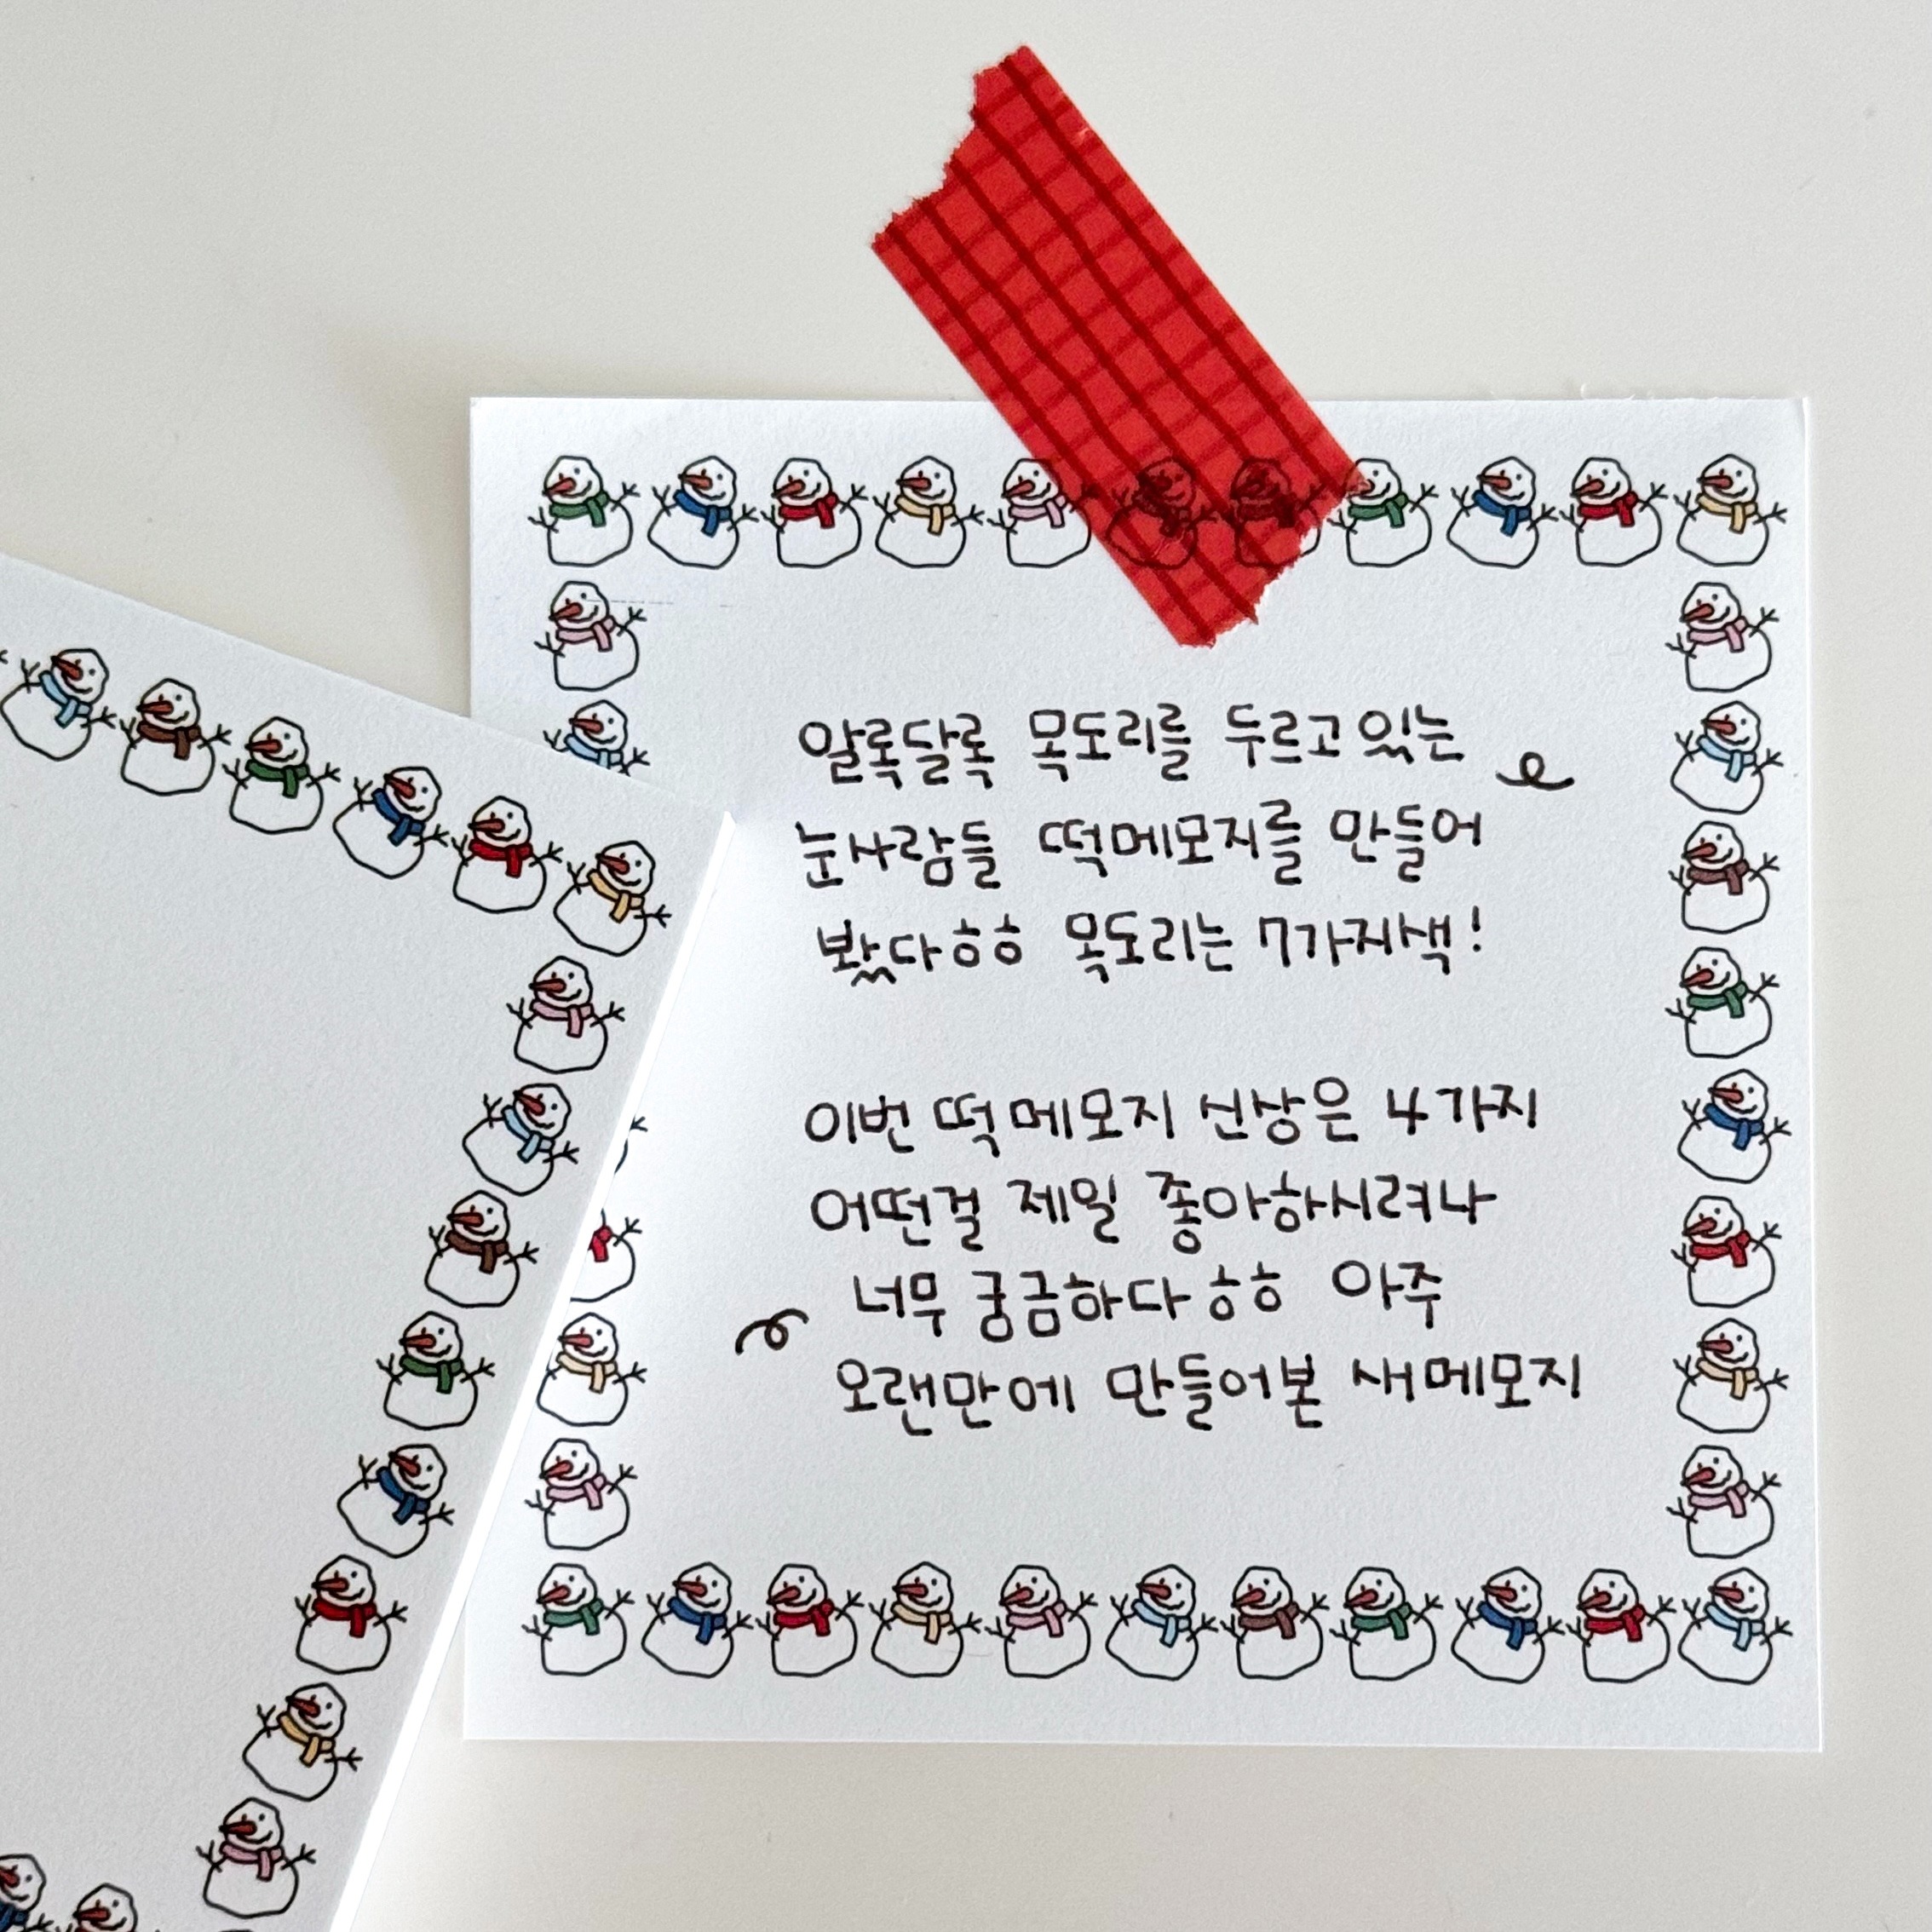 알록달록 목도리를 두르고있는
눈사람들 떡메모지를 만들어
봤다ㅎㅎ 목도리는 7가지색!
이번 떡메모지 신상은 4가지
어떤걸 제일 좋아하시려나
너무 궁금하다ㅎㅎ 아주
오랜만에 만들어본 새메모지